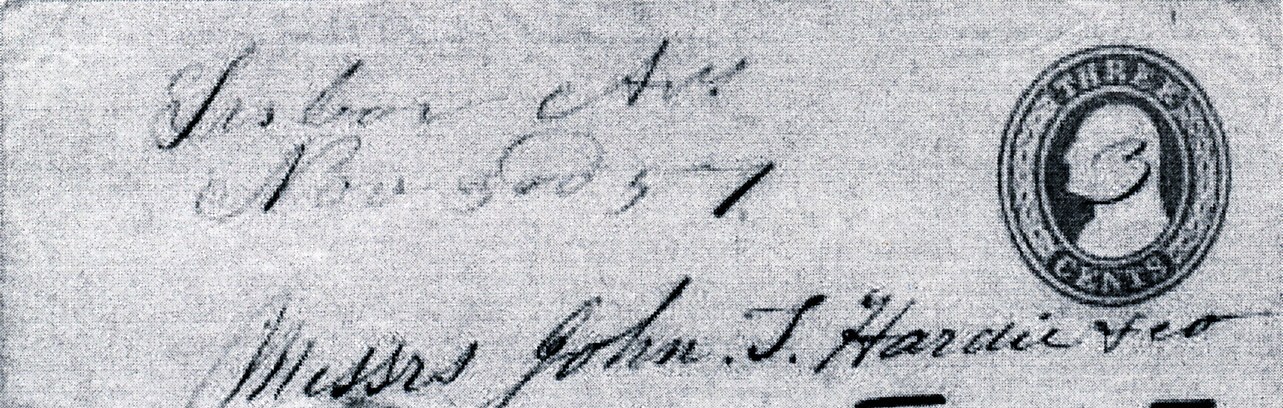 Lisbon Ark
Nov 3rd 57
THREE
3
CENTS
Messrs John. T. Hardie & co